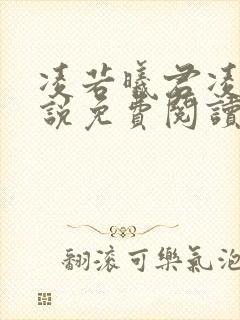 凌若曦君凌
說免費閱讀
翻滾可樂氣泡